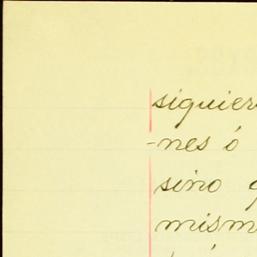 siguier
-nes ó
sino q
mism